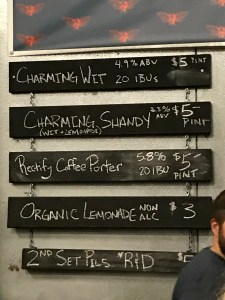 CHARMING WIT 4.9% ABV $5 PINT
20 IBUs
CHARMING SHANDY 2.3% ABV $5- PINT
(WIT + LEMONADE)
Rectify Coffee Porter 5.8% $5- PINT
20 IBU
ORGANIC LEMONADE NON ALC $3
2ND SET PILS *R&D $5